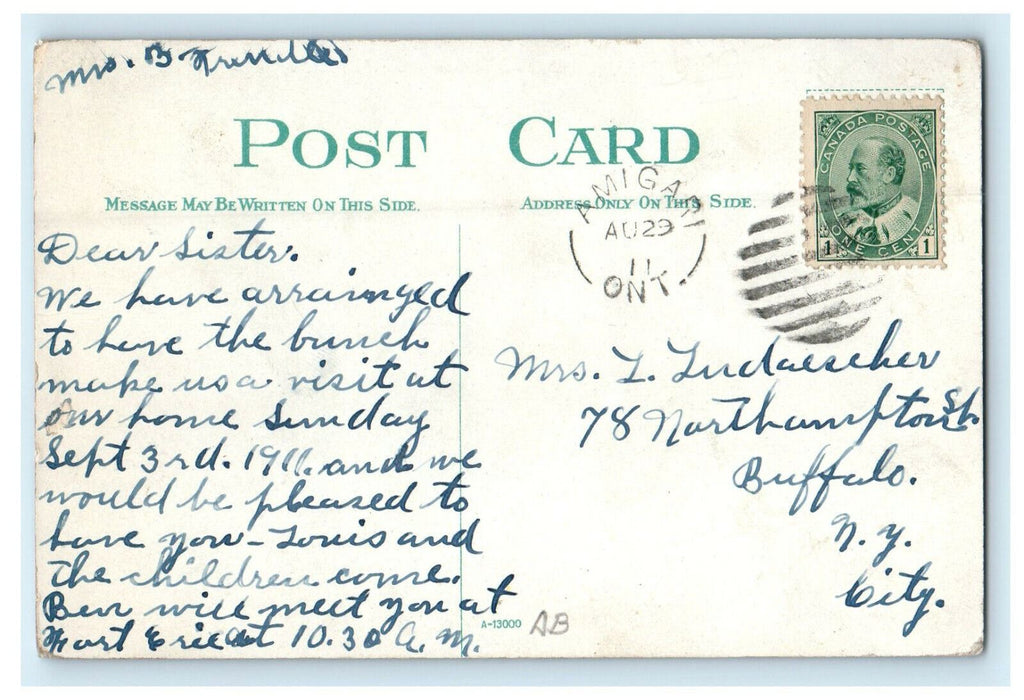 Mrs. B.
POST CARD
MESSAGE MAY BE WRITTEN ON THIS SIDE.
ADDRESS ONLY ON THIS SIDE.
CANADA POSTAGE
1 ONE CENT 1
AMIGARI
AU 29
11
ONT.
Dear Sister.
We have arrainged
to have the bunch
make us a visit at
our home Sunday
Sept 3rd. 1911. and we
would be pleased to
have you - Louis and
the children come.
Ben will meet you at
Fort Erie at 10.30 A.M.
Mrs. L. Ludaescher
78 Northampton St.
Buffalo.
N.Y.
City.
A-13000
AB